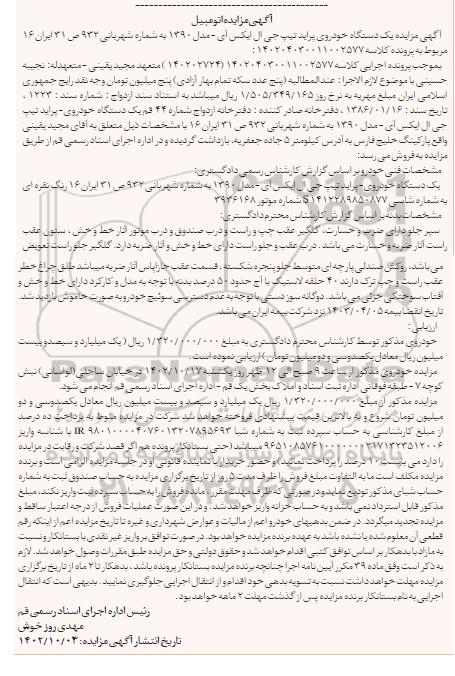 آگهی مزایده اتومبیل
آگهی مزایده یک دستگاه خودروی پراید تیپ جی ال ایکس آی - مدل ۱۳۹۰ به شماره شهربانی ۹۳۲ ص ۳۱ ایران ۱۶
مربوط به پرونده کلاسه ۱۴۰۲۰۴۰۳۰۰۱۱۰۰۲۵۷۷ :
بموجب پرونده اجرایی کلاسه ۱۴۰۲۰۴۰۳۰۰۱۱۰۰۲۵۷۷ (۱۴۰۲۰۲۷۲۴) متعهد مجید یقینی - متعهدله: نجیبه
حسینی با موضوع لازم الاجرا : عندالمطالبه (پنج عدد سکه تمام بهار آزادی) پنج میلیون تومان وجه نقد رایج جمهوری
اسلامی ایران مبلغ مهریه به نرخ روز ۱/۵۰۵/۳۴۹/۱۶۵ ریال میباشد به استناد سند ازدواج : شماره سند : ۱۲۲۳ ،
تاریخ سند : ۱۳۸۶/۰۱/۱۶ ، دفترخانه صادر کننده : دفترخانه ازدواج شماره ۴۴ قم یک دستگاه خودروی- پراید تیپ
جی ال ایکس آی - مدل ۱۳۹۰ به شماره شهربانی ۹۳۲ ص ۳۱ ایران ۱۶ با مشخصات ذیل متعلق به آقای مجید یقینی
واقع پارکینگ خلیج فارس به آدرس کیلومتر ۵ جاده جعفریه، بازداشت گردیده و در اداره اجرای اسناد رسمی قم از طریق
مزایده به فروش می رسد:
مشخصات فنی خودرو بر اساس گزارش کارشناس رسمی دادگستری:
یک دستگاه خودروی- پراید تیپ جی ال ایکس آی - مدل ۱۳۹۰ به شماره شهربانی ۹۳۲ ص ۳۱ ایران ۱۶ رنگ نقره ای
به شماره شاسی S۱۴۱۲۲۸۹۸۵۰۸۷۷ شماره موتور ۳۹۳۶۱۶۸
مشخصات بدنه بر اساس گزارش کارشناس محترم دادگستری:
سپر جلو دارای ضربت و خسارت، گلگیر عقب چپ و راست و درب صندوق و درب موتور آثار خط و خش ، ستون عقب
راست آثار ضربه و خسارت می باشد . درب عقب و جلو راست دارای خط و خش و آثار ضربه دارد. گلگیر جلو راست تعویض
می باشد، روکش صندلی پارچه ای متوسط جلو پنجره شکسته ، قسمت عقب جاریاس آثار ضربه میباشد طلق چراغ خطر
عقب راست و چپ ترک دارند ۴۰ حلقه لاستیک با آج حدود ۵۰ درصد بدنه با توجه به مدل و کارکرد دارای خط و خش و
آفتاب سوختگی جزئی می باشد. دوگانه سوز دستی با توجه به عدم دسترسی سوئیچ خودرو به صورت خاموش بازدید شد.
تاریخ انقضا بیمه ۱۴۰۳/۰۴/۰۵ نزد شرکت بیمه ایران می باشد.
ارزیابی:
خودروی مذکور توسط کارشناس محترم دادگستری به مبلغ ۱/۳۲۰/۰۰۰/۰۰۰ ریال ( یک میلیارد و سیصد و بیست
میلیون ریال معادل یکصد و سی و دو میلیون تومان ) ارزیابی نموده است .
مزایده خودروی مذکور از ساعت ۹ صبح الی ۱۲ ظهر روز یکشنبه ۱۴۰۲/۱۰/۱۷ در خیابان ساحلی (لواسانی) نبش
کوچه ۷ - طبقه فوقانی اداره ثبت اسناد و املاک بخش یک قم - اداره اجرای اسناد رسمی قم انجام می شود.
مزایده مذکور از مبلغ ۱/۳۲۰/۰۰۰/۰۰۰ ریال یک میلیارد و سیصد و بیست میلیون ریال معادل یکصد و سی و دو
میلیون تومان شروع و به بالاترین قیمت پیشنهادی فروخته خواهد شد شرکت در مزایده منوط به پرداخت ده درصد
از مبلغ کارشناسی به حساب سپرده ثبت به شماره شبا IR با شناسه واریز
میباشد (حتی بستانکار پرونده هم اگر قصد شرکت و رقابت در مزایده
را دارد می بایست ۱۰ درصد را پرداخت نمایند) و حضور خریدار یا نماینده قانونی او در جلسه مزایده الزامی است و برنده
مزایده مکلف است ما به التفاوت مبلغ فروش را ظرف مدت ۵ روز از تاریخ برگزاری مزایده به حساب صندوق ثبت به شماره
حساب شبای مذکور تودیع نماید و در صورتی که ظرف مهلت مقرر ، مانده فروش را به حساب سپرده ثبت واریز نکند، مبلغ
مذکور قابل استرداد نمی باشد و به حساب خزانه واریز خواهد شد . و در این صورت عملیات فروش از درجه اعتبار ساقط و
مزایده تجدید میگردد. در ضمن بدهیهای خودرو اعم از مالیات و عوارض شهرداری و غیره تا تاریخ مزایده اعم از اینکه رقم
قطعی آن معلوم شده یا نشده باشد به عهده برنده مزایده خواهد بود. در صورت توافق بر واریز غیر نقدی با بستانکار و نسبت
به مازاد با بدهکار بر اساس توافق کتبی اقدام خواهد شد و حقوق دولتی و حق مزایده طبق مقررات وصول خواهد شد. لازم
به ذکر است وفق ماده ۳۹ مکرر آیین نامه اجرا چنانچه برنده مزایده بستانکار پرونده باشد ، بدهکار تا ۲ ماه از تاریخ برگزاری
مزایده مهلت خواهد داشت نسبت به تسویه بدهی خود اقدام و از انتقال اجرایی جلوگیری نمایید . بدیهی است که انتقال
اجرایی به نام بستانکار برنده مزایده پس از گذشت مهلت ۲ ماهه خواهد بود.
رئیس اداره اجرای اسناد رسمی قم
مهدی روز خوش
تاریخ انتشار آگهی مزایده: ۱۴۰۲/۱۰/۰۳